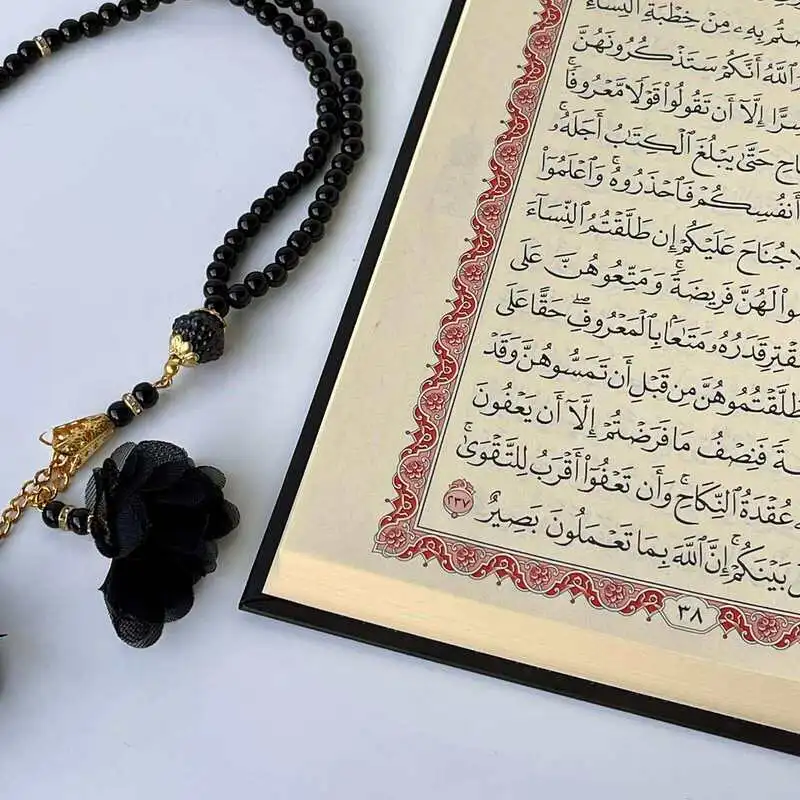 بِهِۦ مِنْ خِطْبَةِ ٱلنِّسَآءِ
ٱللَّهُ أَنَّكُمْ سَتَذْكُرُونَهُنَّ
سِرًّا إِلَّآ أَن تَقُولُوا۟ قَوْلًا مَّعْرُوفًاۚ
ـاحِ حَتَّىٰ يَبْلُغَ ٱلْكِتَٰبُ أَجَلَهُۥۚ
أَنفُسِكُمْ فَٱحْذَرُوهُۚ وَٱعْلَمُوٓا۟
لَّا جُنَاحَ عَلَيْكُمْ إِن طَلَّقْتُمُ ٱلنِّسَآءَ
ـوا۟ لَهُنَّ فَرِيضَةًۚ وَمَتِّعُوهُنَّ عَلَى
ـقْتِرِ قَدَرُهُۥ مَتَٰعًۢا بِٱلْمَعْرُوفِۖ حَقًّا عَلَى
طَلَّقْتُمُوهُنَّ مِن قَبْلِ أَن تَمَسُّوهُنَّ وَقَدْ
ـةً فَنِصْفُ مَا فَرَضْتُمْ إِلَّآ أَن يَعْفُونَ
عُقْدَةُ ٱلنِّكَاحِۚ وَأَن تَعْفُوٓا۟ أَقْرَبُ لِلتَّقْوَىٰۚ
بَيْنَكُمْۚ إِنَّ ٱللَّهَ بِمَا تَعْمَلُونَ بَصِيرٌ ٢٣٧
٣٨